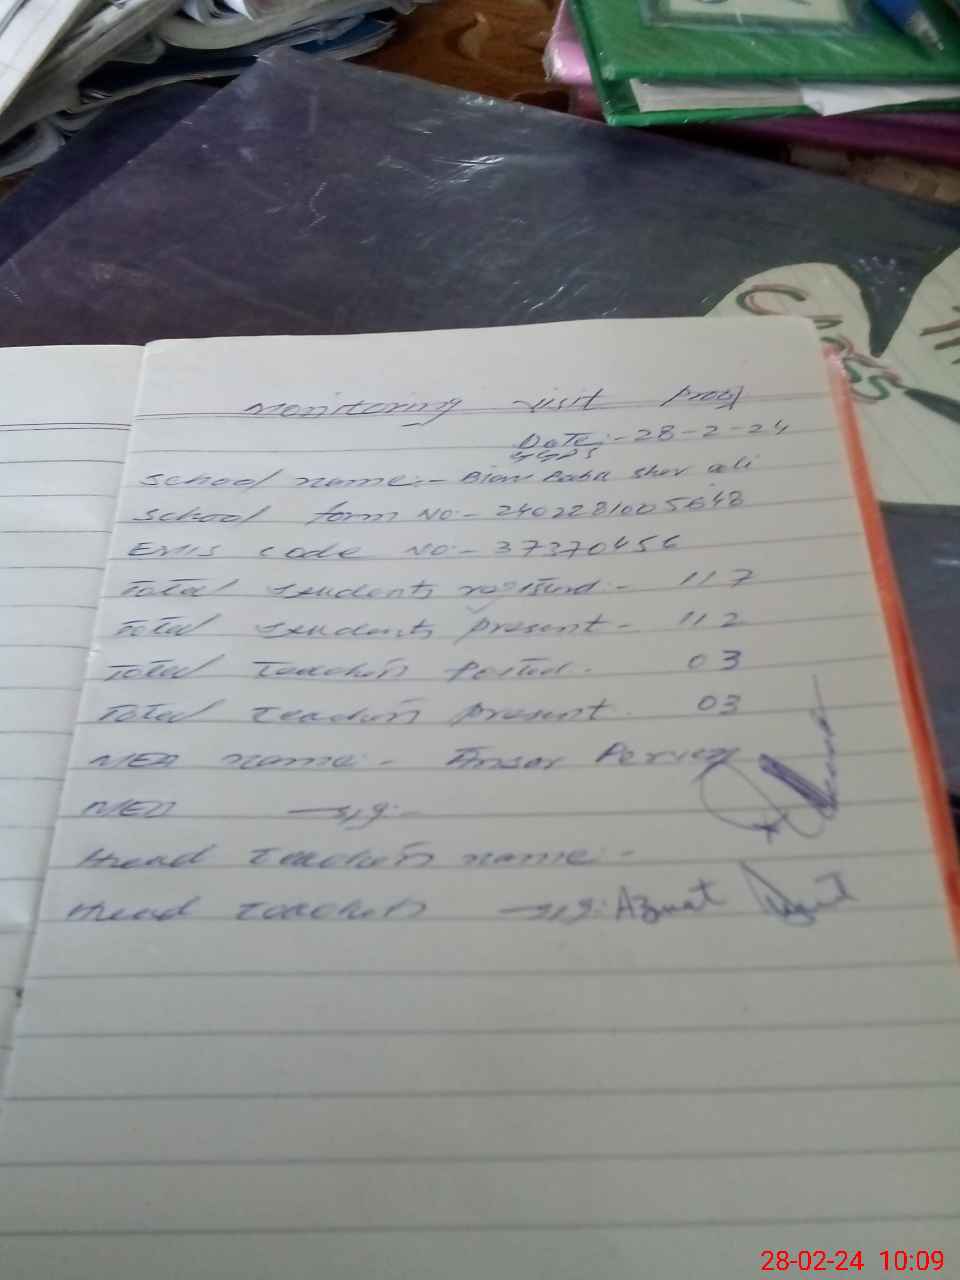 Monitoring visit proof
Date:- 28-2-24
GGPS
School name:- Baba Sher ali
School form No:- 2402281005648
EMIS code No:- 37370456
Total students :- 117
Total students present- 112
Total Teachers Posted. 03
Total Teachers present. 03
MEA name:- Ansar Pervez
MEA sig:-
Head Teachers name:-
Head Teachers sig: Azmat
Class
28-02-24 10:09